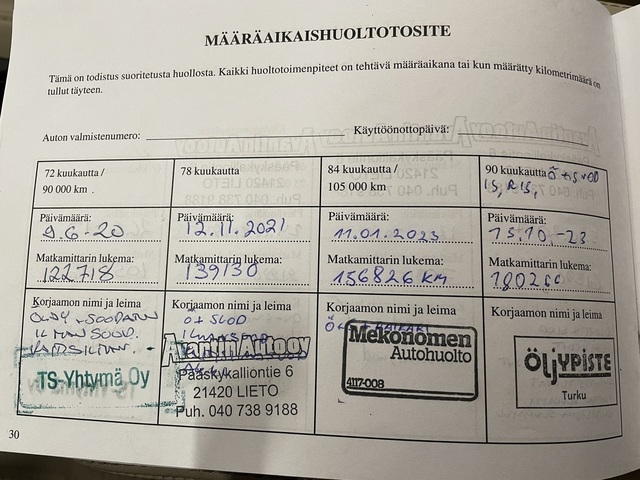 MÄÄRÄAIKAISHUOLTOTOSITE
Tämä on todistus suoritetusta huollosta. Kaikki huoltotoimenpiteet on tehtävä määräaikana tai kun määrätty kilometrimäärä on
tullut täyteen.
Auton valmistenumero:
Käyttöönottopäivä:
72 kuukautta /
90 000 km
Päivämäärä:
9.6-20
Matkamittarin lukema:
122718
Korjaamon nimi ja leima
TS-Yhtymä Oy
78 kuukautta
Päivämäärä:
12.11.2021
Matkamittarin lukema:
139130
Korjaamon nimi ja leima
Ö+
AvantinAutooy
Pääskykalliontie 6
21420 LIETO
Puh. 040 738 9188
84 kuukautta /
105 000 km
Päivämäärä:
11.01.2023
Matkamittarin lukema:
156826 KM
Korjaamon nimi ja leima
Mekonomen
Autohuolto
4117-008
90 kuukautta
Päivämäärä:
15.10.-23
Matkamittarin lukema:
Korjaamon nimi ja leima
ÖLJYPISTE
Turku
30